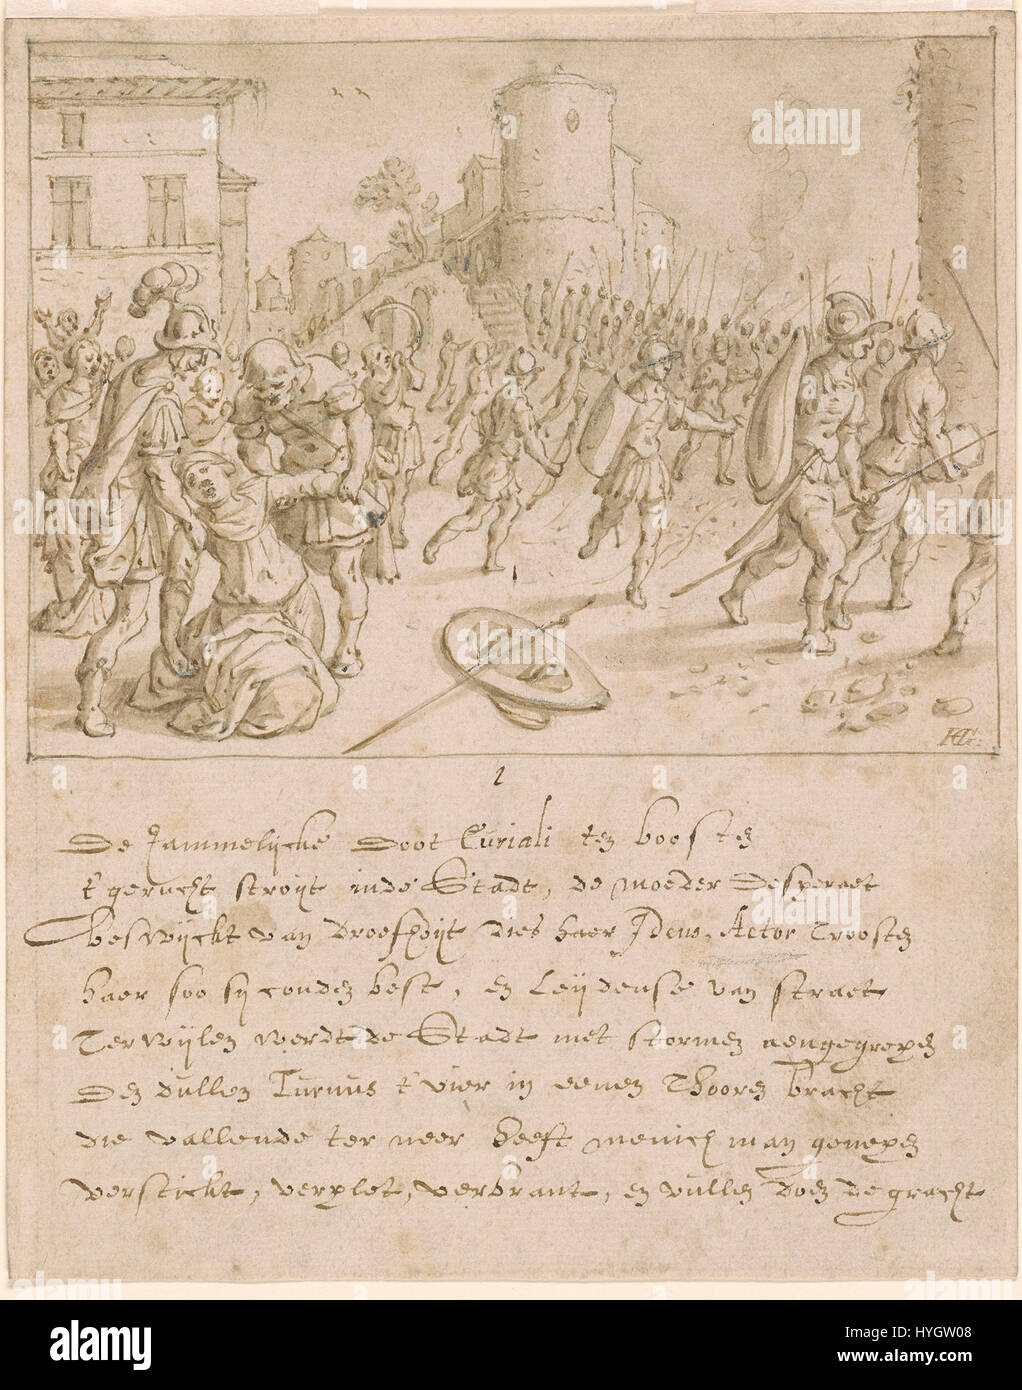 HG:
1
De Jammelijcke Doot Euriali ten boosten
t'gerucht stroijt inde Stadt, de moeder Desperaet
beswijckt van Droefheijt dies haer Ideus, Actor Troosten
haer soo sij conden best, en Leijdense van straet
Terwijlen werdt de Stadt met stormen aengegrepen
Den dullen Turnus t'vier in eenen Thooren bracht
die vallende ter neer heeft menich man genepen
verstickt, verplet, verbrant, en vullen doen de gracht
alamy
alamy
Image ID: HYGW08
www.alamy.com